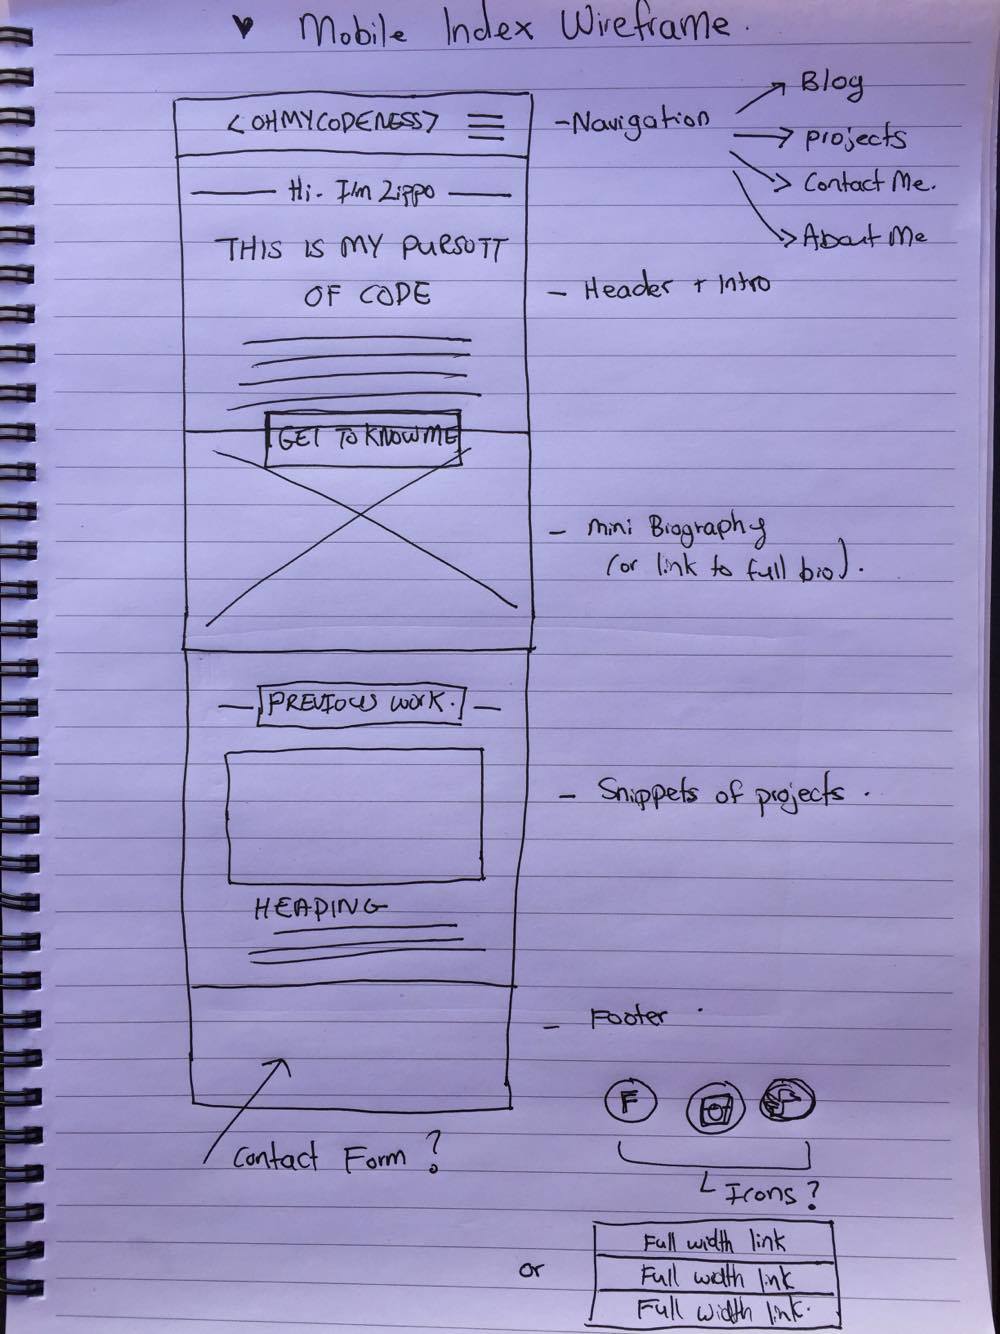 ♥ Mobile Index Wireframe.
<OHMYCODENESS>
- Navigation
Blog
Projects
Contact Me.
About Me
Hi. I'm Zippo
THIS IS MY PURSUIT
OF CODE
- Header + Intro
GET TO KNOW ME
- Mini Biography
(or link to full bio).
PREVIOUS WORK.
- Snippets of projects.
HEADING
- Footer.
F
Contact Form?
Icons?
or
Full width link
Full width link
Full width link.